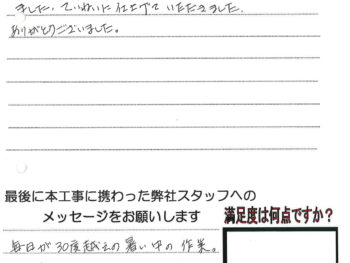 ました。ていねいに仕上げていただきました。
ありがとうございました。
最後に本工事に携わった弊社スタッフへの
メッセージをお願いします
満足度は何点ですか？
毎日が30度越えの暑い中の作業。